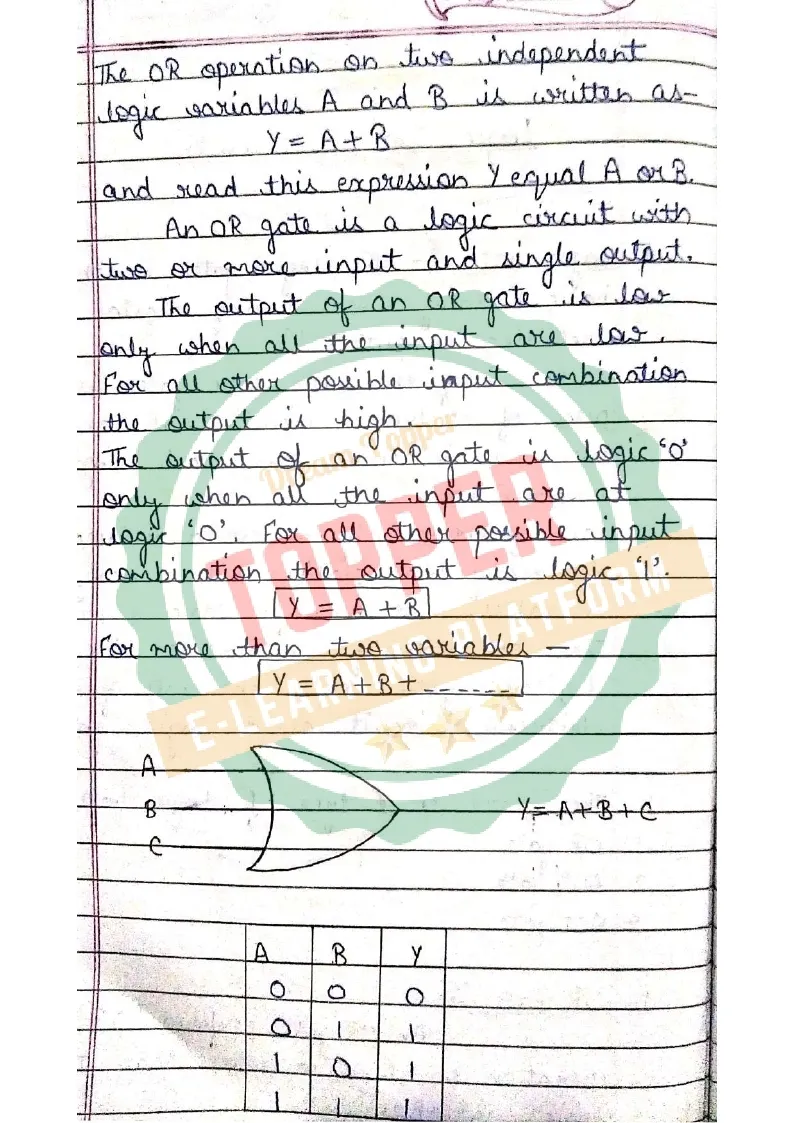 The OR operation on two independent
logic variables A and B is written as-
Y = A + B
and read this expression Y equal A or B.
An OR gate is a logic circuit with
two or more input and single output.
The output of an OR gate is low
only when all the input are low.
For all other possible input combination
the output is high.
The output of an OR gate is logic '0'
only when all the input are at
logic '0'. For all other possible input
combination the output is logic '1'.
Y = A + B
For more than two variables —
Y = A + B + ------
A
B
C
Y = A + B + C
A B Y
0 0 0
0 1 1
1 0 1
1 1 1
Dream Topper
TOPPER
E-LEARNING PLATFORM